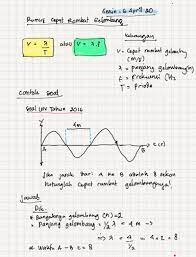 Senin, 6 April 20
Rumus Cepat Rambat Gelombang
V = λ/T atau V = λ.f
Keterangan
V = Cepat rambat gelombang (m/s)
λ = panjang gelombang (m)
f = frekuensi (Hz)
T = Periode
Contoh Soal
Soal UN Tahun 2016
4m
A
t (s)
Jika jarak dari A ke B adalah 8 sekon
Hitunglah cepat rambat gelombangnya!
Jawab
Dik.
Banyaknya gelombang (n) = 2
Panjang gelombang = 1/2 λ = 4 m →
λ = 4 / 1/2 = 4 × 2 = 8
Waktu A - B = 8